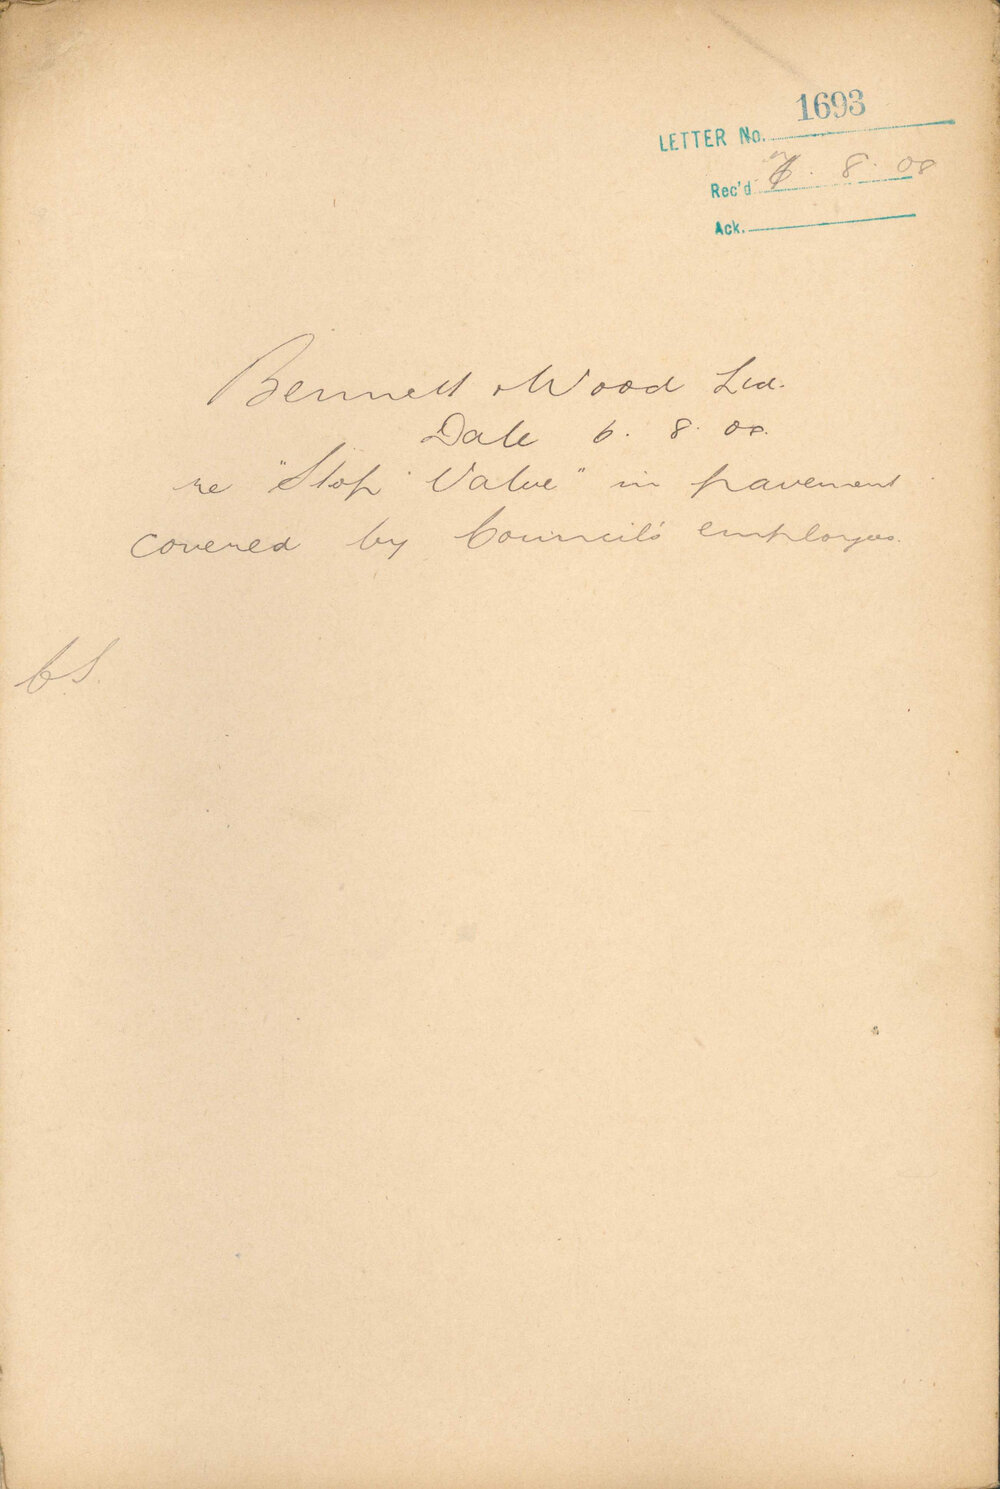 1693
LETTER No.
Rec'd 7. 8. 08
Ack.
Bennett & Wood Ltd.
Date 6. 8. 08.
re "Stop Valve" in pavement
covered by Council's employees.
C.S.